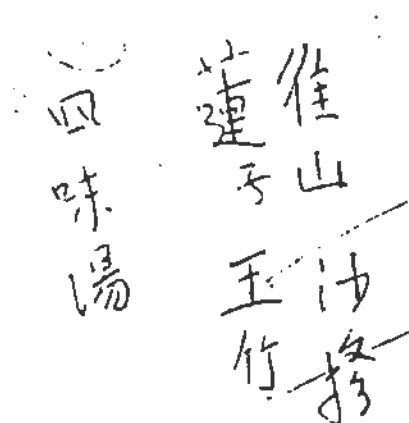 淮山 沙摻
蓮子 玉竹
四味湯